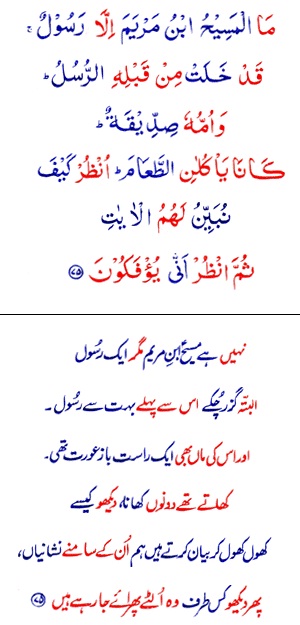 مَا الْمَسِيْحُ ابْنُ مَرْيَمَ اِلَّا رَسُوْلٌ ۚ
قَدْ خَلَتْ مِنْ قَبْلِهِ الرُّسُلُ ؕ
وَاُمُّهٗ صِدِّيْقَةٌ ؕ
كَانَا يَاْكُلٰنِ الطَّعَامَ ؕ اُنْظُرْ كَيْفَ
نُبَيِّنُ لَهُمُ الْاٰيٰتِ
ثُمَّ انْظُرْ اَنّٰى يُؤْفَكُوْنَ ﴿۷۵﴾
نہیں ہے مسیح ابنِ مریم مگر ایک رسُول
البتّہ گزر چُکے اس سے پہلے بہت سے رسُول ۔
اور اس کی ماں بھی ایک راست باز عورت تھی۔
کھاتے تھے دونوں کھانا، دیکھو کیسے
کھول کھول کر بیان کرتے ہیں ہم اُن کے سامنے نشانیاں،
پھر دیکھو کس طرف وہ اُلٹے پھرائے جا رہے ہیں ﴿۷۵﴾